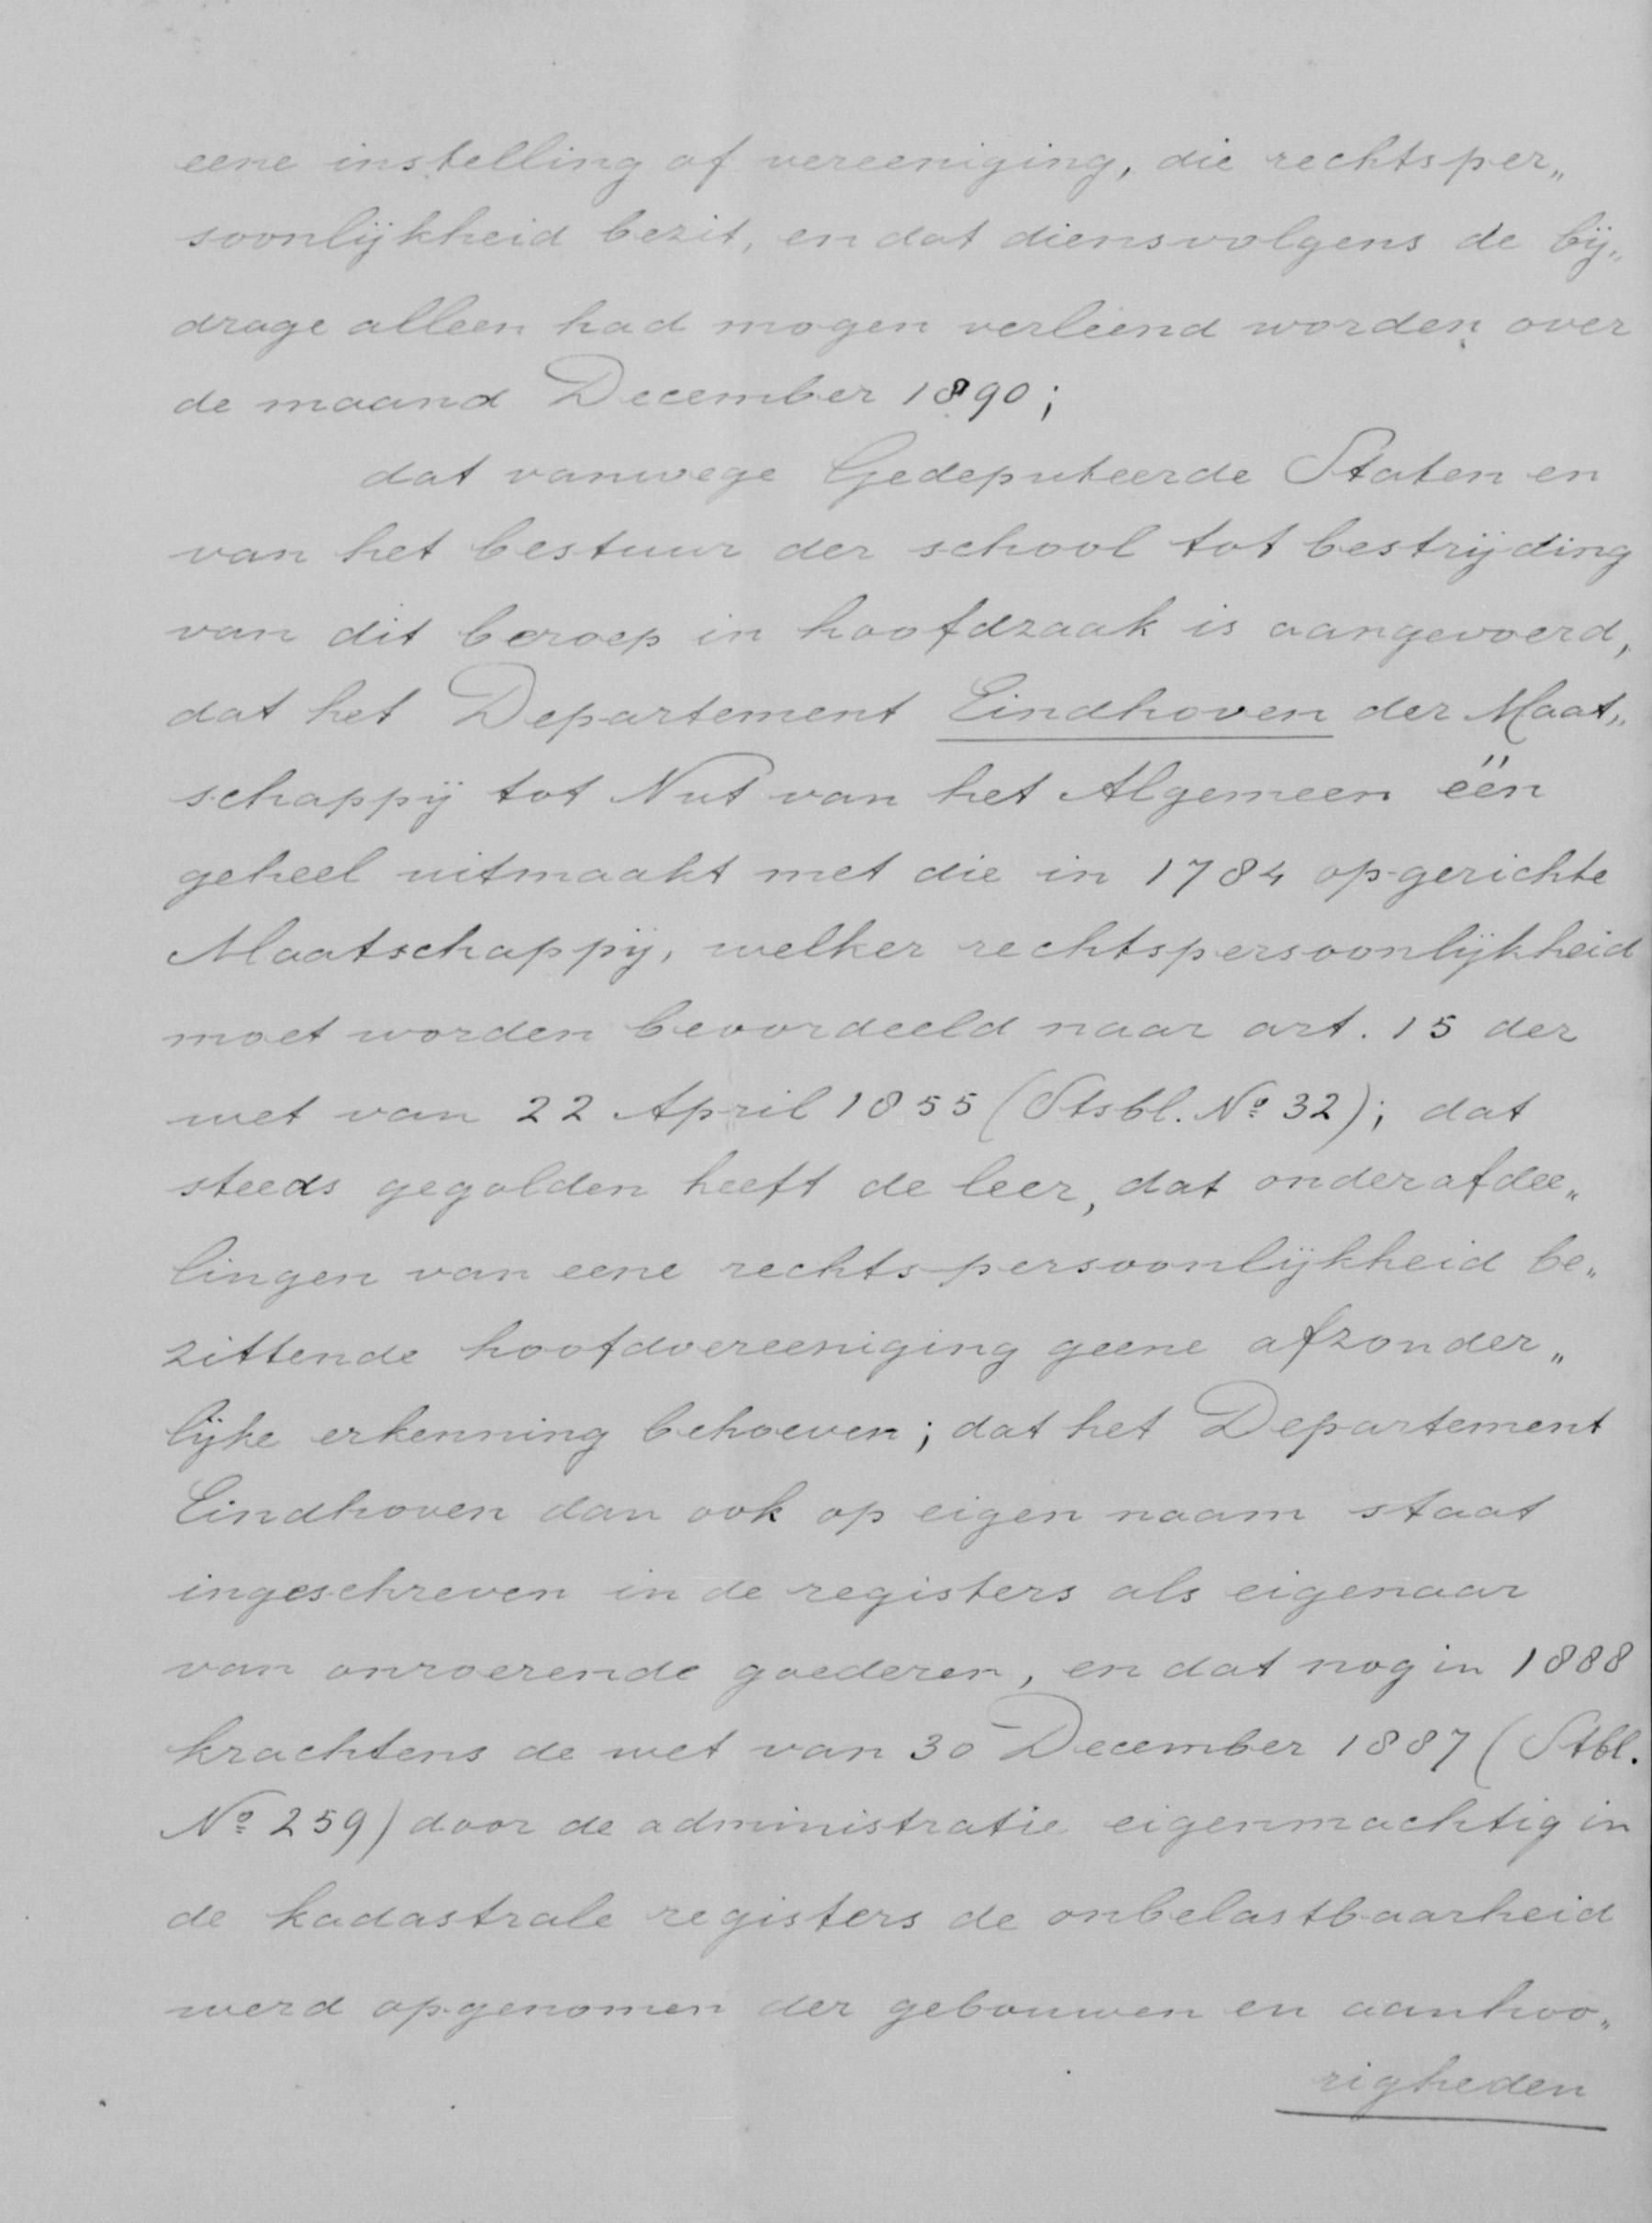 eene instelling of vereeniging, die rechtsper„
soonlijkheid bezit, en dat diensvolgens de bij„
drage alleen had mogen verleend worden over
de maand December 1890;
dat vanwege Gedeputeerde Staten en
van het bestuur der school tot bestrijding
van dit beroep in hoofdzaak is aangevoerd,
dat het Departement Eindhoven der Maat„
schappij tot Nut van het Algemeen één
geheel uitmaakt met die in 1784 opgerichte
Maatschappij, welker rechtspersoonlijkheid
moet worden beoordeeld naar art. 15 der
wet van 22 April 1855 (Stsbl. Nº 32); dat
steeds gegolden heeft de leer, dat onderafdee„
lingen van eene rechtspersoonlijkheid be„
zittende hoofdvereeniging geene afzonder„
lijke erkenning behoeven; dat het Departement
Eindhoven dan ook op eigen naam staat
ingeschreven in de registers als eigenaar
van onroerende goederen, en dat nog in 1888
krachtens de wet van 30 December 1887 (Stbl.
Nº 259) door de administratie eigenmachtig in
de kadastrale registers de onbelastbaarheid
werd opgenomen der gebouwen en aanhoo„
righeden